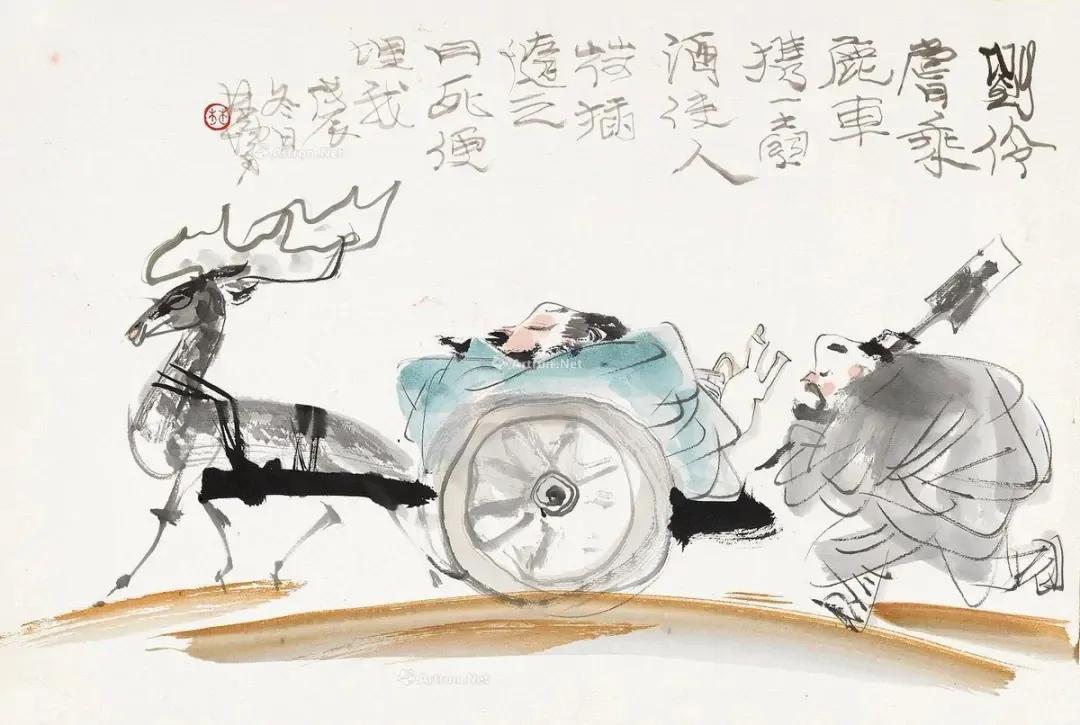 劉伶
嘗乘
鹿車
攜一壺
酒使人
荷插
隨之
曰死便
埋我
戊辰
冬月
Artron.Net
Artron.Net
Artron.Net